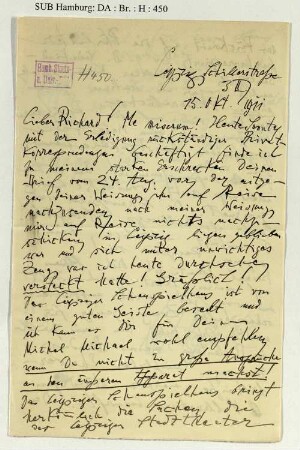 SUB Hamburg: DA : Br. : H : 450
H 450.
Leipzig Schillerstraße
5 III
15. Okt. 1911
Lieber Richard! Me miserum! Heute Sonntag
mit der Erledigung rückständiger Privat-
korrespondenz beschäftigt finde ich
zu meinem starken Schrecken Deinen
Brief vom 24. Aug. vor, der
Deiner Weisung, auf Reise
nachzusenden nach meiner Weisung
mir auf Reise nichts nach-
schicken in Leipzig liegen geblieben
war und sich unter unwichtiges
Zeug war ich heute
versteckt hatte! Grässlich!
Das Leipziger Schauspielhaus ist von
einem guten Geiste beseelt und
ich kann es Dir für Deinen
Michel Michael wohl empfehlen
wenn Du nicht zu große Ansprüche
an den äußeren Apparat machst!
Das Leipziger Schauspielhaus bringt
die Sachen die
das Leipziger Stadttheater